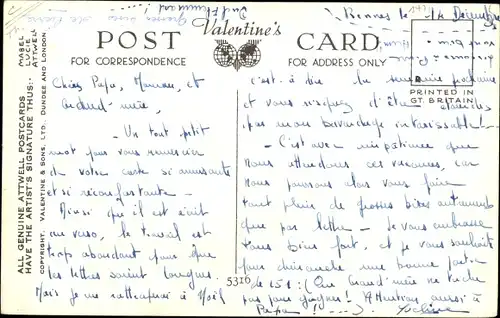 Rennes le 14
Valentine's
POST CARD
FOR CORRESPONDENCE
FOR ADDRESS ONLY
PRINTED IN
GT. BRITAIN
ALL GENUINE ATTWELL POSTCARDS
HAVE THE ARTIST'S SIGNATURE THUS:-
MABEL
LUCIE
ATTWELL
COPYRIGHT. VALENTINE & SONS, LTD. DUNDEE AND LONDON.
5310
Chers Papa, Maman, et
Grand-mère,
- Un tout petit
mot pour vous remercier
de votre carte si amusante
et si réconfortante -
Ainsi qu'il est écrit
au verso, le travail est
trop abondant pour que
les lettres soient longues.
Mais je me rattraperai à Noël
c'est-à-dire la semaine prochaine
et vous risquez d'être
par mon bavardage intarissable! -
- C'est avec impatience que
nous attendons ces vacances, car
nous pourrons alors vous faire
tout plein de grosses bises autrement
que par lettre - Je vous embrasse
tous bien fort, et je vous souhaite
pour dimanche une bonne partie
de 151! (Que Grand'mère ne triche
pas pour gagner! Attention aussi à
Papa! )....